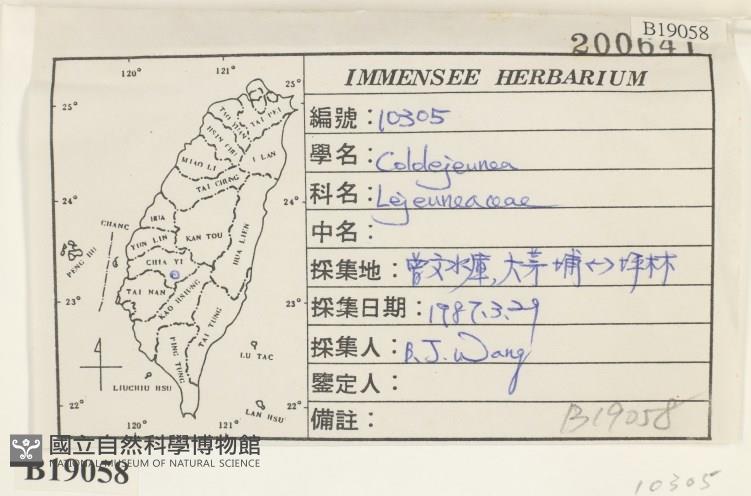 B19058
200641
IMMENSEE HERBARIUM
編號：10305
學名：Coldejeunea
科名：Lejeuneaceae
中名：
採集地：曾文水庫，大茅埔<->坪林
採集日期：1987.3.29
採集人：B.J. Wang
鑒定人：
備註：
B19058
120° 121°
25° 25°
TAO YUAN
TAI PEI
HSIN CHU
MIAO LI
I LAN
TAI CHUNG
24° 24°
CHANG HUA
NAN TOU
HUA LIEN
YUN LIN
PENG HU
CHIA YI
23° 23°
TAI NAN
KAO HSIUNG
TAI TUNG
PING TUNG
LU TAO
LIUCHIU HSU
LAN HSU
22° 22°
120° 121°
國立自然科學博物館
NATIONAL MUSEUM OF NATURAL SCIENCE
B19058
10305